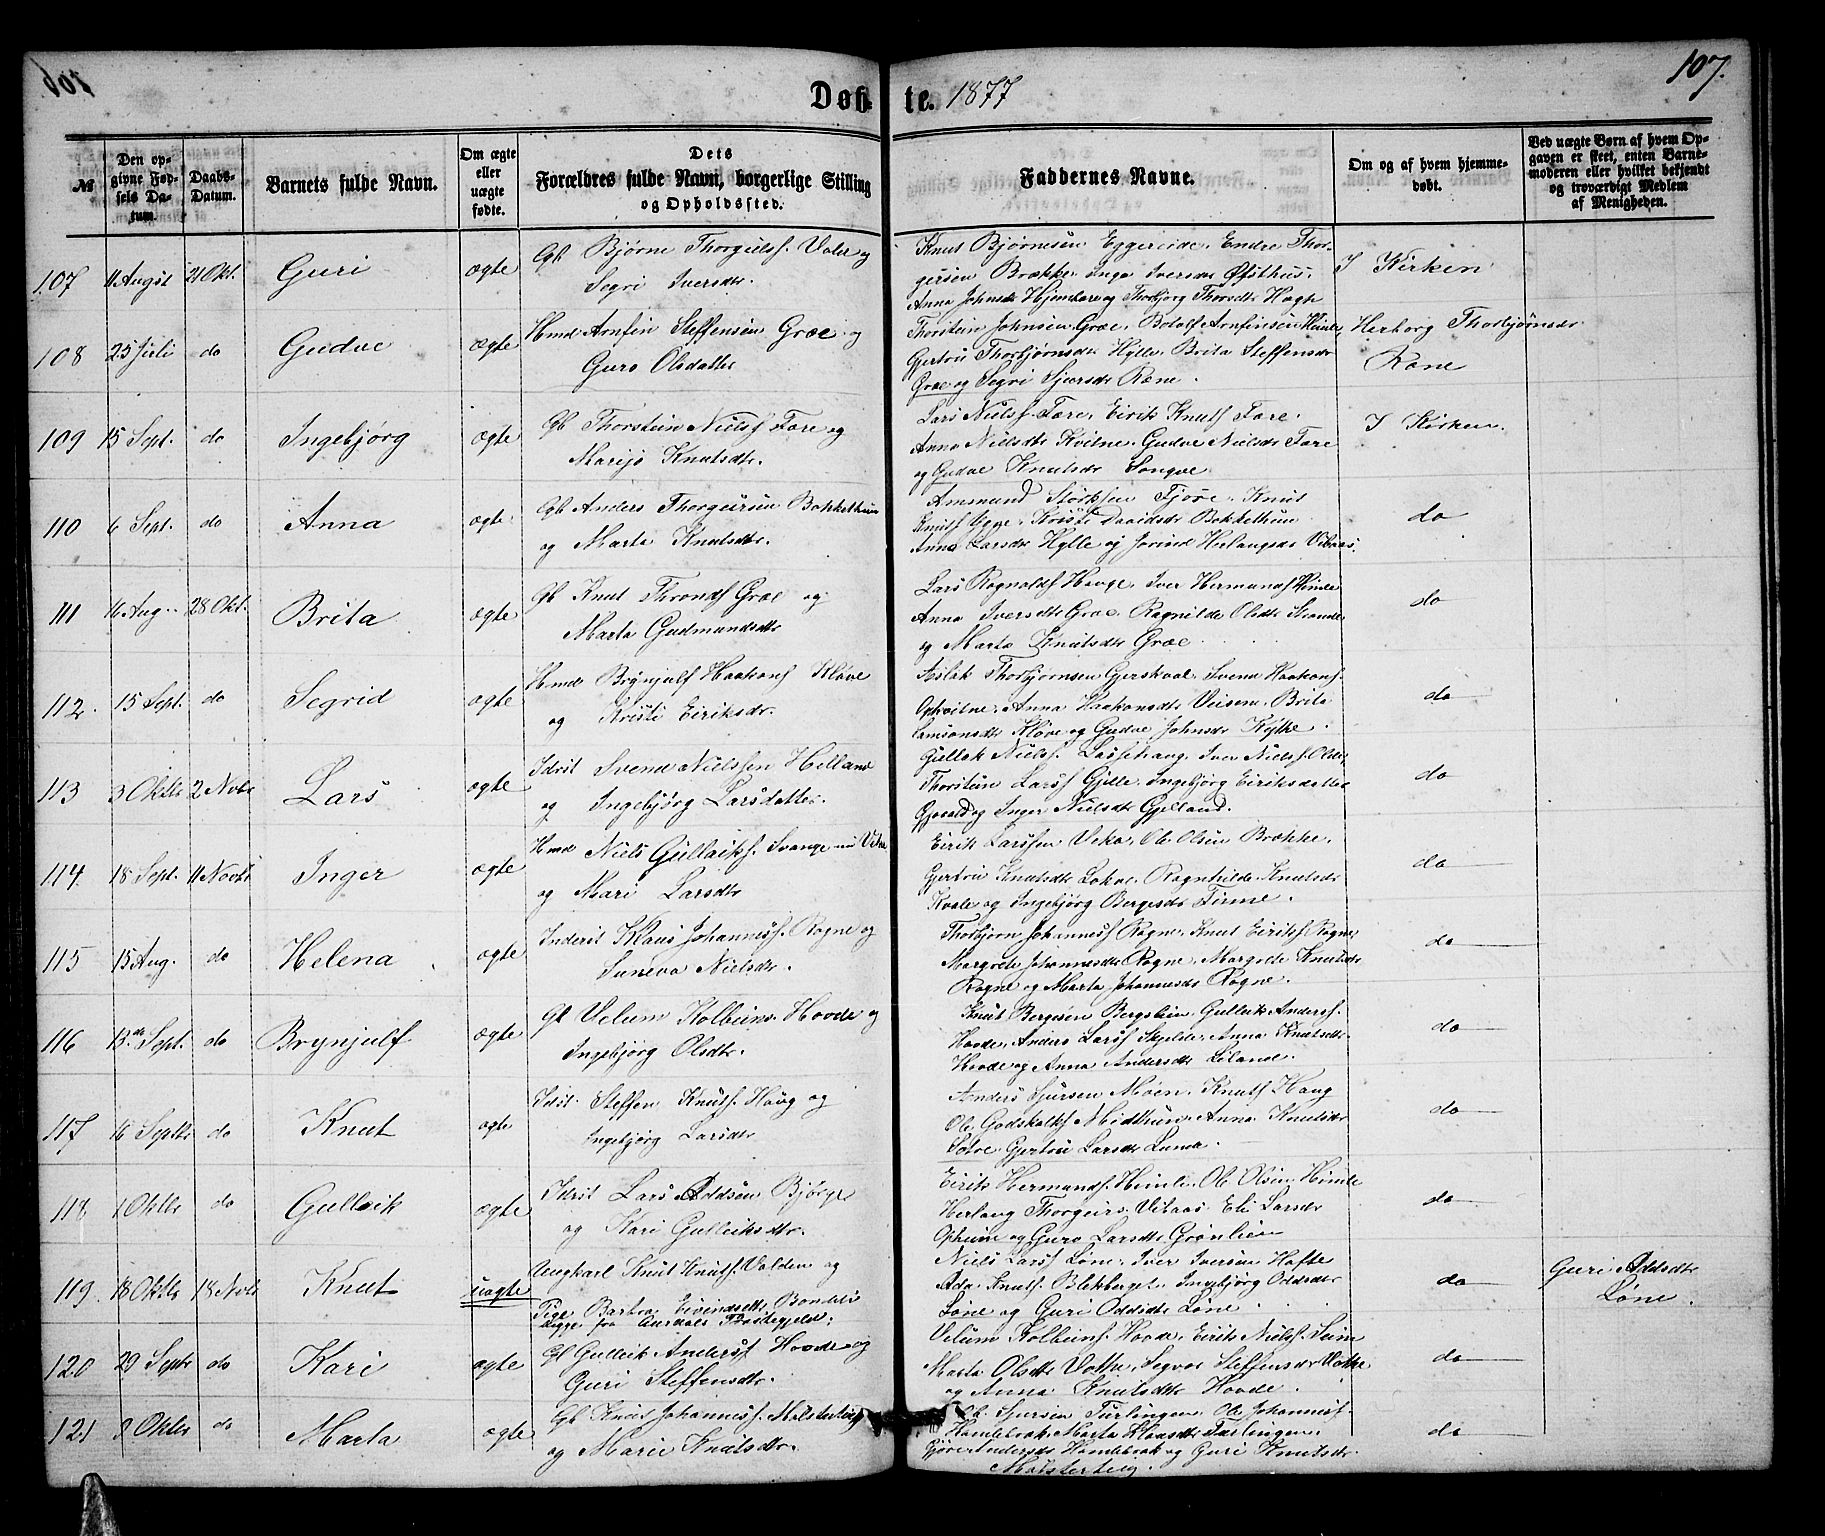 107.
Døb- te. 1877
№
Den opgivne Fødsels Datum.
Daabs-Datum.
Barnets fulde Navn.
Om ægte eller uægte fødte.
Dets Forældres fulde Navn, borgerlige Stilling og Opholdssted.
Faddernes Navne.
Om og af hvem hjemmedøbt.
Ved uægte Børn af hvem Opgaven er skeet, enten Barnemoderen eller hvilket bekjendt og troværdigt Medlem af Menigheden.
107 11 Augst 21 Okt. Guri ægte Gb Bjørne Thorgulsf. Vater og
Segri Iversdtr.
Knut Bjørnesen Eggereide, Endre Thor-
gersen Brække, Inga Iversdr Østhus,
Anna Johnsdr Hjemtare og Thorbjørg Thorsdtr Hagte
I Kirken
108 25 Juli do Gudve ægte Hmd Arnfin Steffensen Græe og
Guro Olsdatter
Thorstein Johnsen Græe, Botolf Arnfinsen Himle,
Gjertru Thorbjørnsdr Hylle, Brita Steffensdr
Græe og Segri Sjursdr Rone.
Herborg Thorbjørnsdr
Rone
109 15 Sept. do Ingebjørg ægte Gb Thorstein Nielsf Fære og
Marijo Knutsdtr.
Lars Nielsf. Fære, Eirik Knutsf Fære.
Anna Nielsdtr Kvitne, Gudve Nielsdr Fære
og Gudve Knutsdr Songve
I Kirken.
110 6 Sept. do Anna ægte Gb Anders Thorgeirsen Bokkethun
og Marta Knutsdtr.
Ammund Størksen Fjøse, Knut
Knutsf Ygge, Kristi Davidsdr Bokkethun
Anna Larsdr Hylle og Jorind Herlangsdr Vibaas.
do
111 16 Aug. 28 Okt. Brita ægte Gb Knut Throndsf Græe og
Marta Gudmundsdtr
Lars Ragnaldsf Hauge, Iver Hermundsf Himle
Anna Iversdtr Græe, Ragnilde Olsdtr Strande
og Marta Knutsdtr Græe
do
112. 15 Sept. do Segrid ægte Hmd Brynjulf Haakonsf Kløve
og Kristi Eiriksdr.
Aslak Thorbjørnsen Gjerskval, Svend Haakonsf.
Opkvitne, Anna Haakonsdtr Veisene, Brita
Samsonsdtr Kløve og Gudve Johnsdr Kytke.
do
113 3 Oktbr 2 Novbr Lars ægte Idrst Svend Nielssen Helland
og Ingebjørg Larsdatter.
Gullak Nielsf. Lassehaug, Iver Nielsf. Olde,
Thorstein Larsf Gjelle, Ingebjørg Eiriksdatter
og Inger Nielsdtr Gjelland.
do
114 18 Sept. 11 Novbr Inger ægte Hmd Niels Gullaiksf. Svange
og Mari Larsdtr
Eirik Larssen Veka, Ole Olsen Brække,
Gjertru Knutsdtr Lokve, Ragnhilde Knutsdr
Kvale og Ingebjørg Bergesdr Finne.
do
115 15 Aug. do Helena ægte Inderst Klaus Johannesf. Rogne og
Suneva Nielsdtr.
Thorbjørn Johannesf Rogne, Knut Eiriksf Rogne,
Margrete Johannesdtr Rogne, Margrete Knutsdr
Rogne og Marta Johannesdr Rogne.
do
116 13de Sept. do Brynjulf ægte Gb Velum Kolbeins. Hovde og
Ingebjørg Olsdtr.
Knut Bergesen Bergslein, Gullak Andersf.
Hovde, Anders Larsf Skjelde, Anna Knutsdtr.
Hovde og Anna Andersdr Leiland.
do
117 16 Septbr do Knut ægte Idrst. Steffen Knutsf. Haug og
Ingebjørg Larsdr
Anders Sjursen Moen, Knutsf. Haug
Ole Godskalksf Midthun, Anna Knutsdr
Gjertru Larsdr
do
118 1 Oktbr do Gulleik ægte Idrst Lars Oddsen Bjørge
og Kari Gulleiksdtr.
Eirik Hermundsf. Himle, Ole Olsen Himle
Herlang Thorgeirs. Vibaas, Eli Larsdr
Opheim og Guro Larsdtr Grønlien
do
119 18 Oktbr 18 Novbr Knut uægte Ungkarl Knut Knutsf. Valden og
Pige Barbra Eivindsdtr
begge fra Aurdals Præstegjeld.
Niels Larsf Løne, Iver Iversen Hafte
Knutsf. Blekberget, Ingebjørg Oddsdtr
Løne og Guri Oddsdtr Løne
do
Guri Oddsdtr
Løne.
120 29 Septr do Kari ægte Gb Gulleik Andersf Hovde og
Guri Steffensdtr.
Velum Kolbeinsf. Hovde, Eirik Nielsf. Seim
Marta Olsdtr Vothe, Segvor Steffensdr Vothe
og Anna Knutsdtr Hovde.
do
121 9 Oktbr do Marta ægte Gb Knut Johannesf. Mølsterteig
og Marie Knutsdtr.
Ole Sjursen Turlingen, Ole Johannesf.
Hamlebrok, Marta Klausdtr Turlingen,
Andersdr Hamlebrok og Guri Knutsdr
Mølsterteig.
do